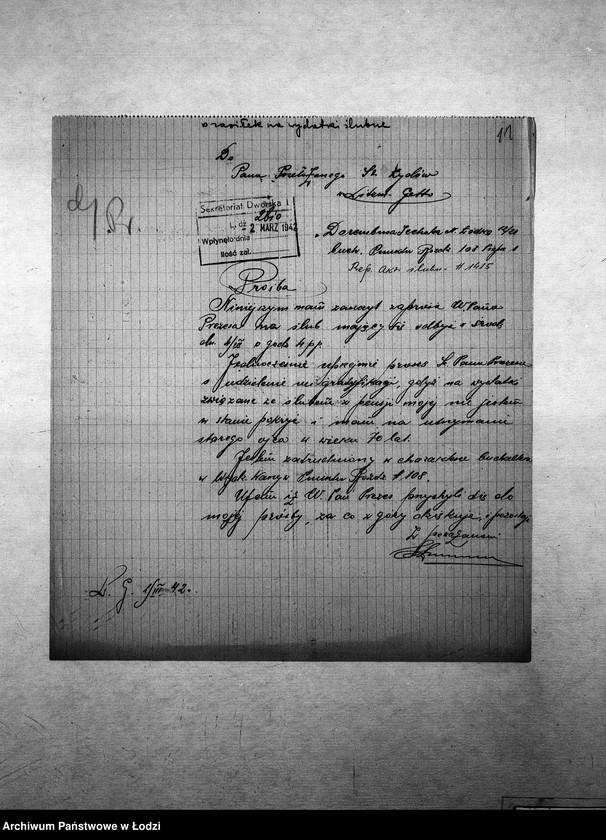 o zasiłek na wydatki ślubne
11
Do
Pana Przełożonego St. Żydów
w Litzm. Getto
d/ Pr.
Sekretariat Dworska 1
L. dz. 2810
Wpłynęło dnia 2 MARZ 1942
Ilość zał.
Buch. Punktu Rozdz. 108
ślubu. # 1415
Prośba
Niniejszym mam zaszczyt zaprosić W. Pana
Prezesa na ślub mający się odbyć w
dn. 4/III o godz 4 pp.
Jednocześnie uprzejmie proszę Sz. Pana Prezesa
o udzielenie mi gratyfikacji, gdyż na wydatki
związane ze ślubem z pensji mojej nie jestem
w stanie pokryć i mam na utrzymaniu
starego ojca w wieku 70 lat.
Jestem zatrudniony w charakterze buchaltera
w Punktu Rozdz # 108.
Ufam iż W. Pan Prezes przychyli się do
mojej prośby, za co z góry dziękuję i pozostaję
Z poważaniem
L. G. 1/III 42.
Archiwum Państwowe w Łodzi